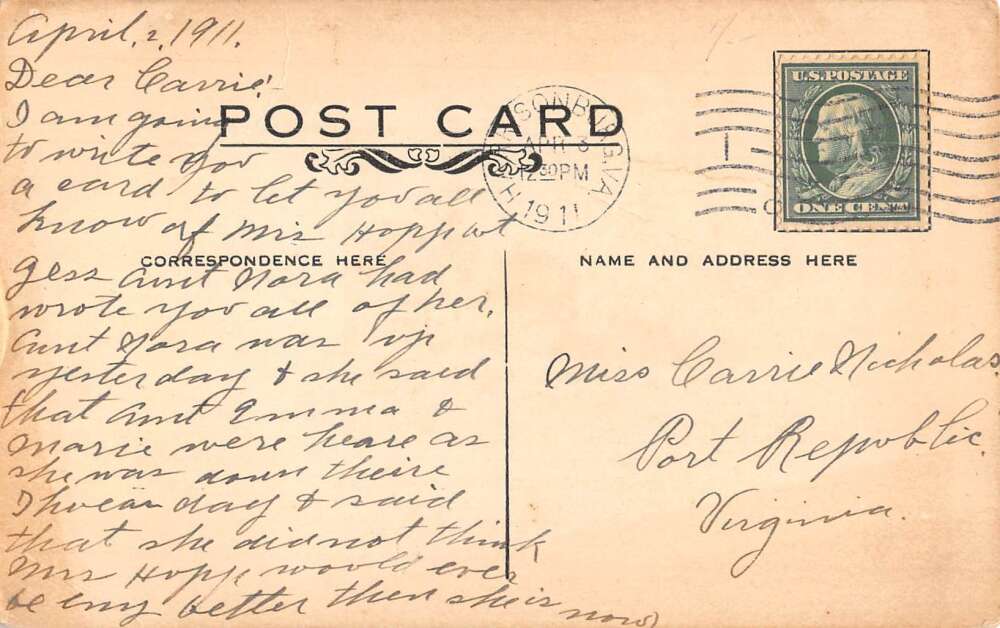 April. 2, 1911.
Dear Carrie!
I am going
to write you
a card to let you all
know of Mrs Hopp wt
gess Aunt Nora had
wrote you all of her,
Aunt Nora was up
yesterday & she said
that Aunt Emma &
Marie were heare as
she was down theire
day & said
that she did not think
Mrs Hopp, would ever
be eny better then she is now
POST CARD
CORRESPONDENCE HERE
NAME AND ADDRESS HERE
HARRISONBURG, VA.
APR 3
12 30 PM
1911
U.S. POSTAGE
ONE CENT
1
Miss Carrie Nicholas
Port Republic
Virginia.